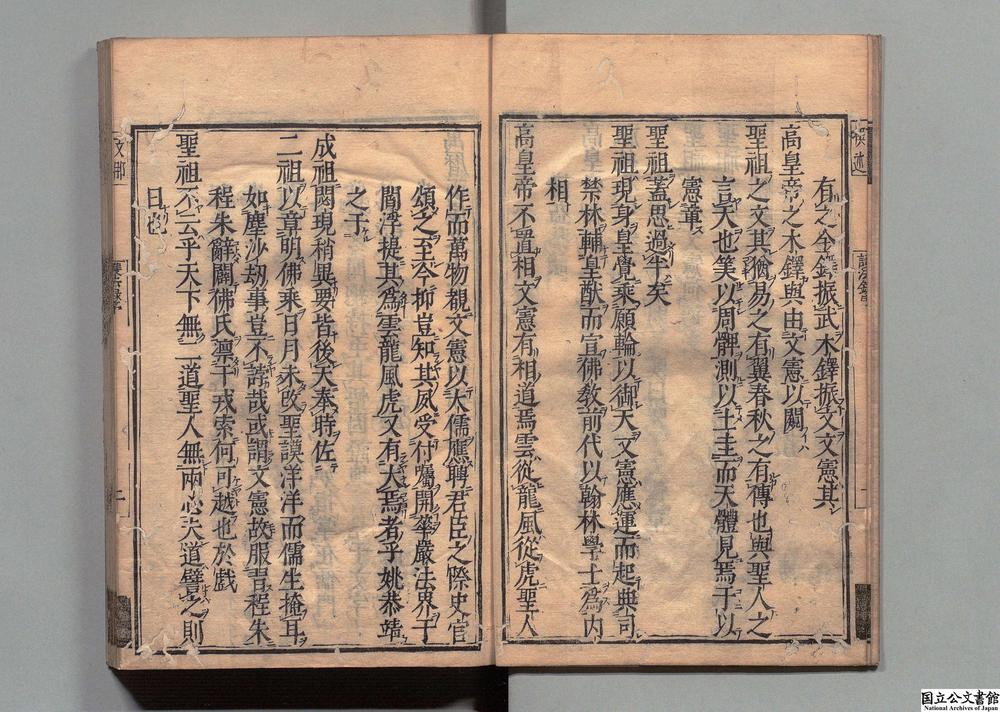 有之金鐸振武木鐸振文文憲其
高皇帝之木鐸與由文憲以闚
聖祖之文其猶易之有翼春秋之有傳也與聖人之
言天也筭以周髀測以土圭而天體見焉于以
憲章
聖祖蓋思過半矣
聖祖現身皇覺乘願輪以御天文憲應運而起典司
禁林輔皇猷而宣佛教前代以翰林學士為内
相
高皇帝不置相文憲有相道焉雲從龍風從虎聖人
作而萬物覩文憲以大儒應聘君臣之際史官
頌之至今抑豈知其夙受付囑開華嚴法界于
閻浮提其為雲龍風虎又有大焉者乎姚恭靖
之于
成祖閟現稍異要皆後天奉時佐
二祖以章明佛乘日月未改聖謨洋洋而儒生掩耳
如塵沙劫事豈不誖哉或謂文憲故服習程朱
程朱辭闢佛氏凛于戎索何可越也於戲
聖祖不云乎天下無二道聖人無兩心夫道譬之則
日也
国立公文書館
National Archives of Japan